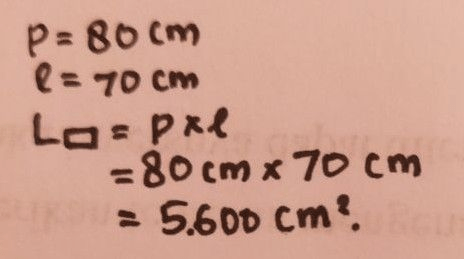 p = 80 cm
l = 70 cm
L▭ = p x l
= 80 cm x 70 cm
= 5.600 cm².